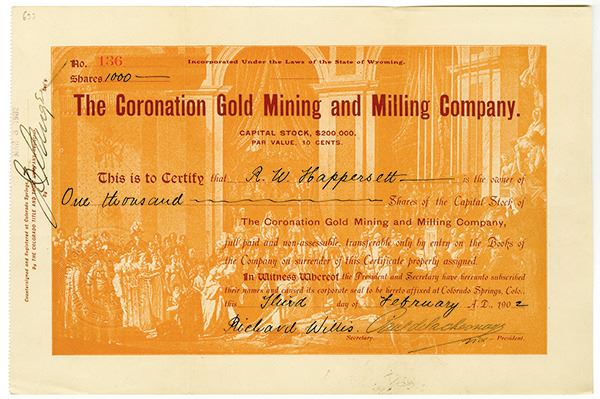 633
No. 136
Incorporated Under the Laws of the State of Wyoming.
Shares 1000
The Coronation Gold Mining and Milling Company.
CAPITAL STOCK, $200,000.
PAR VALUE, 10 CENTS.
This is to Certify that R. W. Happersett is the owner of
One thousand Shares of the Capital Stock of
The Coronation Gold Mining and Milling Company,
full paid and non-assessable, transferable only by entry on the Books of
the Company on surrender of this Certificate properly assigned.
In Witness Whereof the President and Secretary have hereunto subscribed
their names and caused its corporate seal to be hereto affixed at Colorado Springs, Colo.,
this Third day of February A.D., 1902
Richard Willis
Secretary. Vice President.
Countersigned and Registered at Colorado Springs
By THE COLORADO TITLE AND